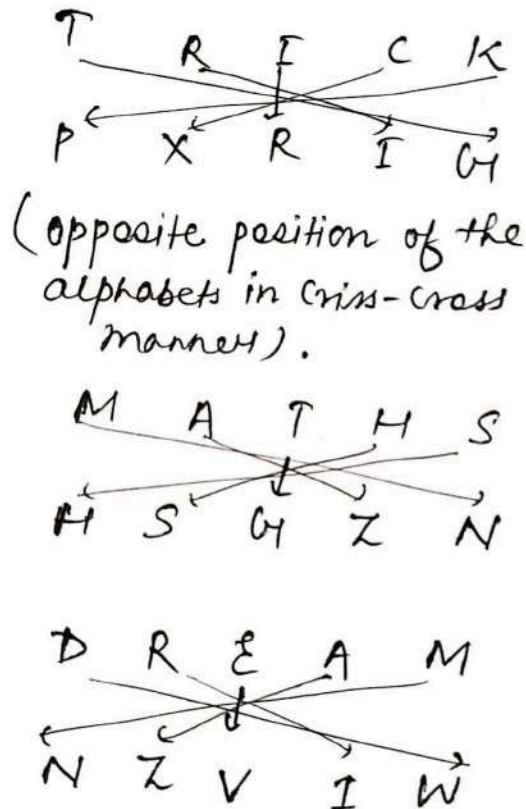 T R I C K
P X R I G
(opposite position of the
alphabets in criss-cross
manner).
M A T H S
H S G Z N
D R E A M
N Z V I W